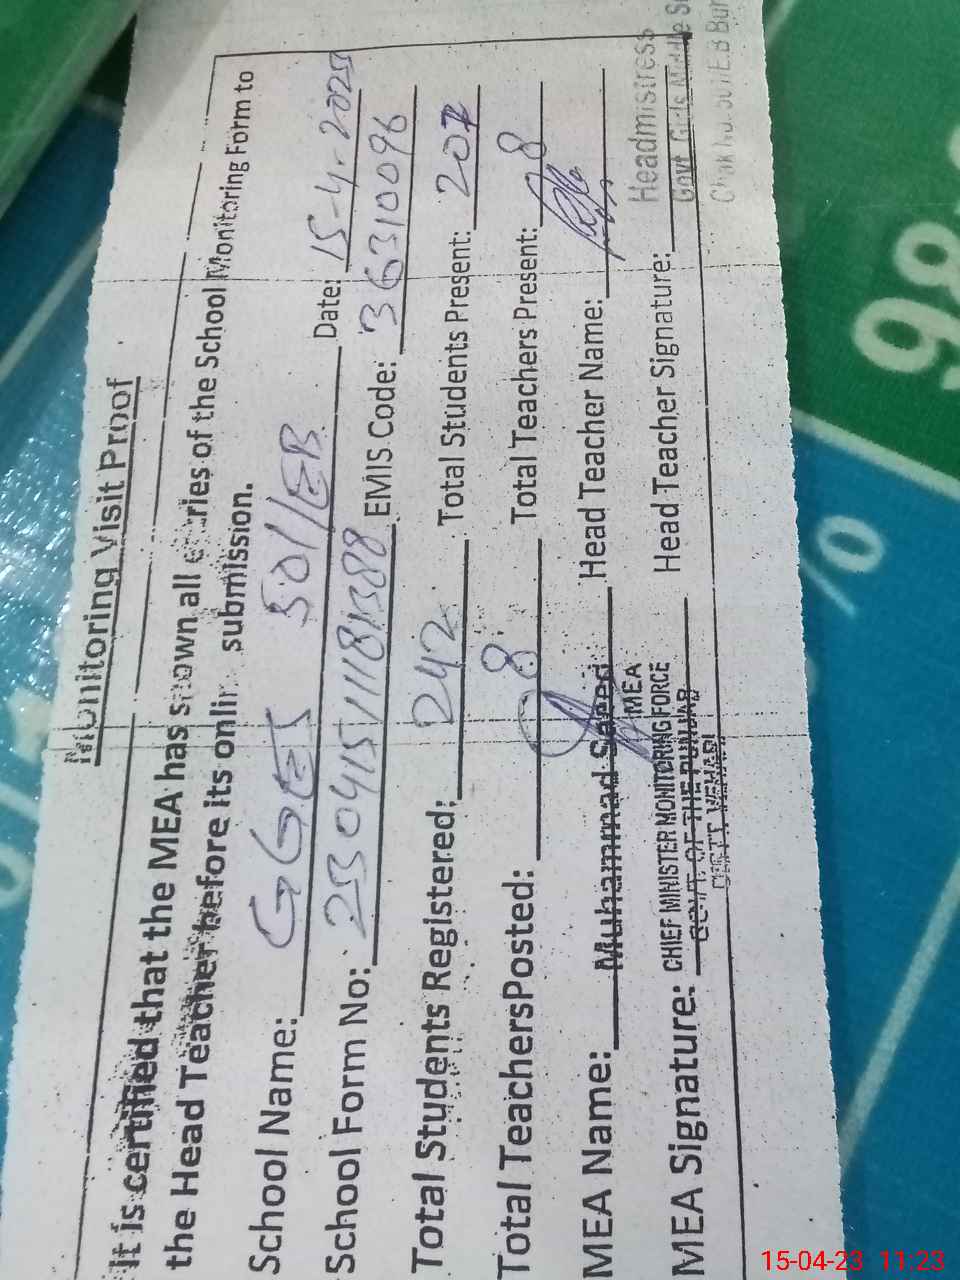 Monitoring Visit Proof
It is certified that the MEA has shown all entries of the School Monitoring Form to
the Head Teacher before its online submission.
School Name: GGES 501/EB Date: 15-4-2023
School Form No: EMIS Code: 36310096
Total Students Registered: 242 Total Students Present: 207
Total TeachersPosted: 8 Total Teachers Present: 8
MEA Name: Muhammad Saeed Head Teacher Name:
MEA
MEA Signature: CHIEF MINISTER MONITORING FORCE Head Teacher Signature:
GOVT. OF THE PUNJAB
DISTT VEHARI
Headmistress
Govt. Girls Middle
Chak No. 501/E.B Bur
98
%
15-04-23 11:23